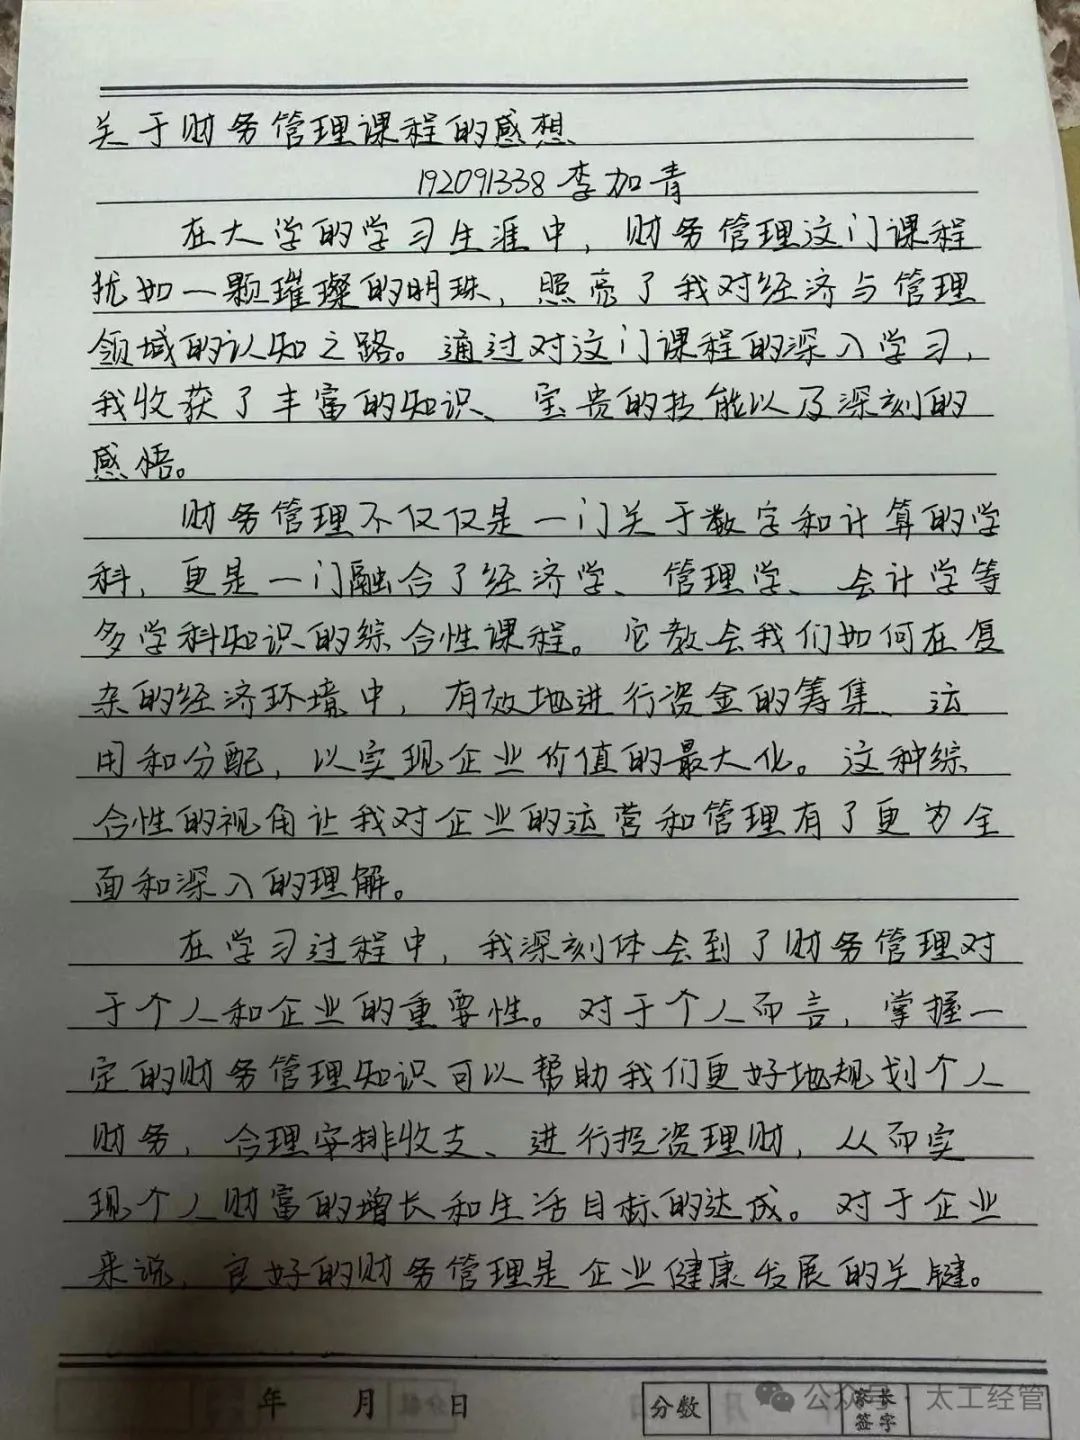 关于财务管理课程的感想
192091338 李加青
在大学的学习生涯中，财务管理这门课程
犹如一颗璀璨的明珠，照亮了我对经济与管理
领域的认知之路。通过对这门课程的深入学习，
我收获了丰富的知识、宝贵的技能以及深刻的
感悟。
财务管理不仅仅是一门关于数字和计算的学
科，更是一门融合了经济学、管理学、会计学等
多学科知识的综合性课程。它教会我们如何在复
杂的经济环境中，有效地进行资金的筹集、运
用和分配，以实现企业价值的最大化。这种综
合性的视角让我对企业的运营和管理有了更为全
面和深入的理解。
在学习过程中，我深刻体会到了财务管理对
于个人和企业的重要性。对于个人而言，掌握一
定的财务管理知识可以帮助我们更好地规划个人
财务，合理安排收支、进行投资理财，从而实
现个人财富的增长和生活目标的达成。对于企业
来说，良好的财务管理是企业健康发展的关键。
年 月 日 分数 家长签字
公众号 · 太工经管